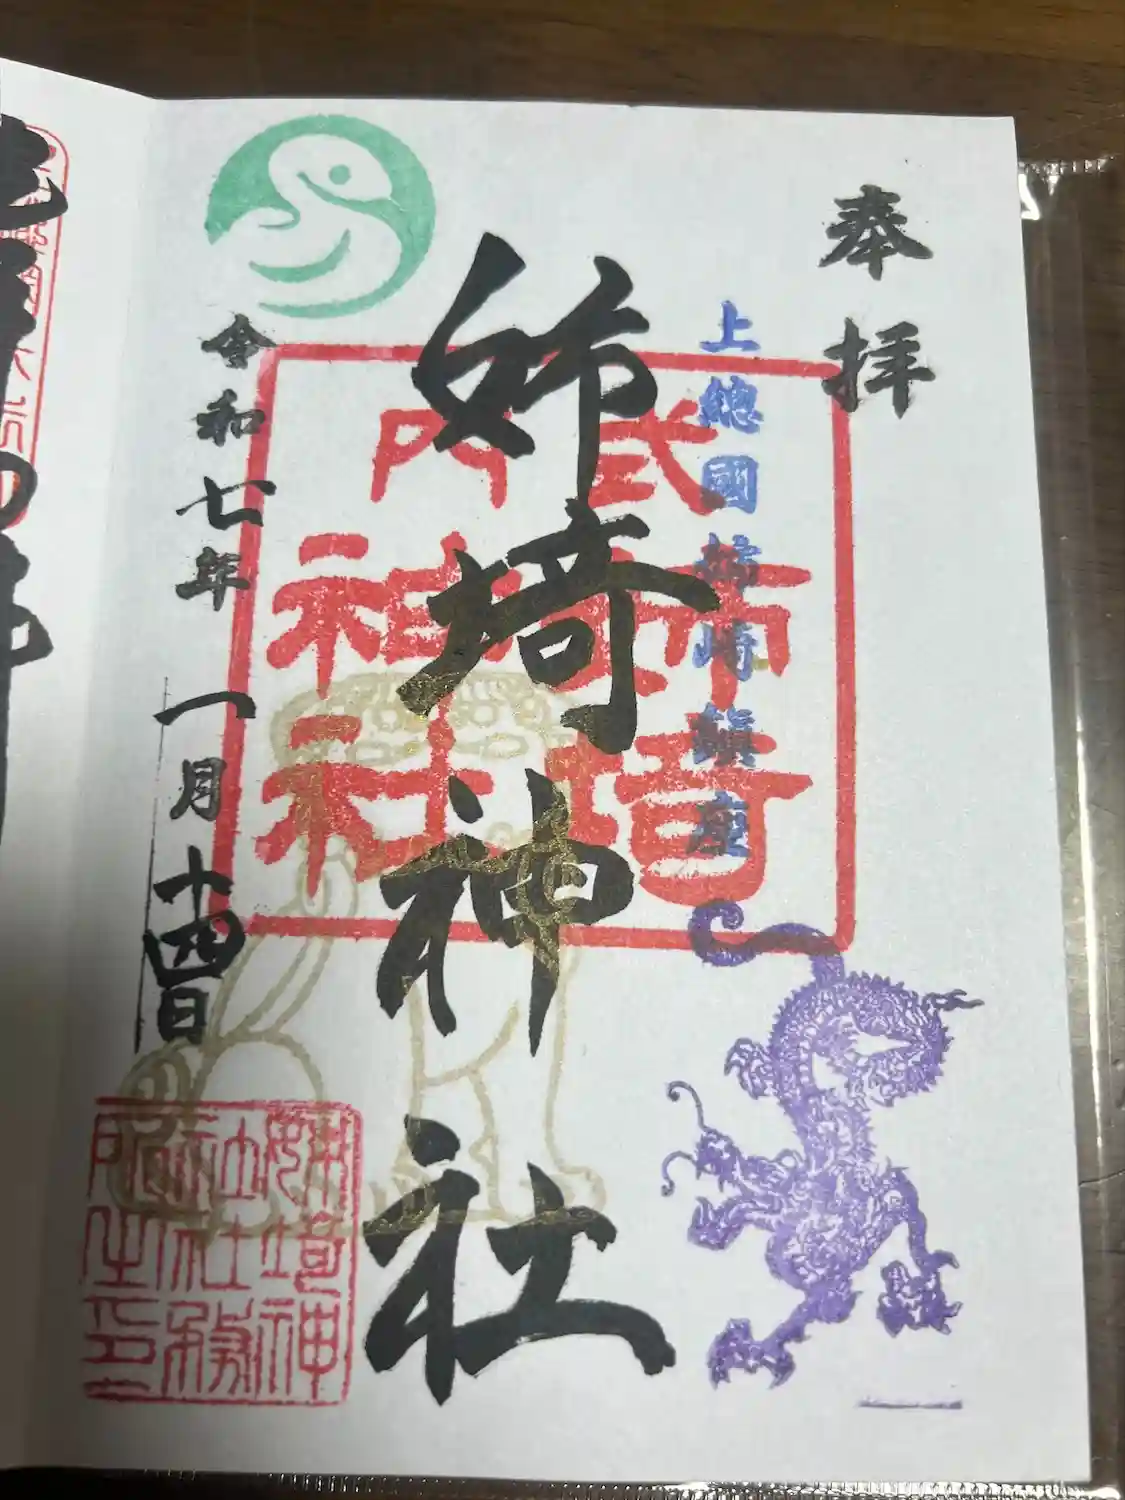 奉拝
上總國姉崎鎮座
式内
姉埼
神社
姉埼神社
令和七年一月十四日
姉埼神
社社務
所之印